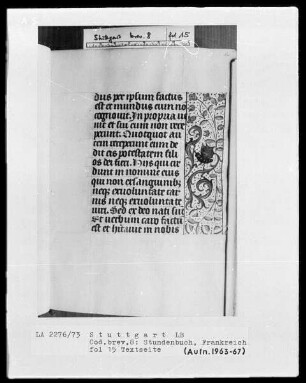 Stuttgart brev. 8 fol 15
dus per ipsum factus
est et mundus eum no
cognouit. In propria ue
nit et sui eum non rece
perunt. Quotquot au
tem receperunt eum de
dit eis potestatem fili
os dei fieri. Hijs qui cre
dunt in nomine eius
qui non ex sanguinibz
neqz ex uoluntate car
nis neqz ex uoluntate
uiri. Sed ex deo nati sut
Et uerbum caro factu
est et hitauit in nobis
LA 2276/73 Stuttgart LB
Cod.brev.8: Stundenbuch, Frankreich
fol 15 Textseite
(Aufn.1963-67)